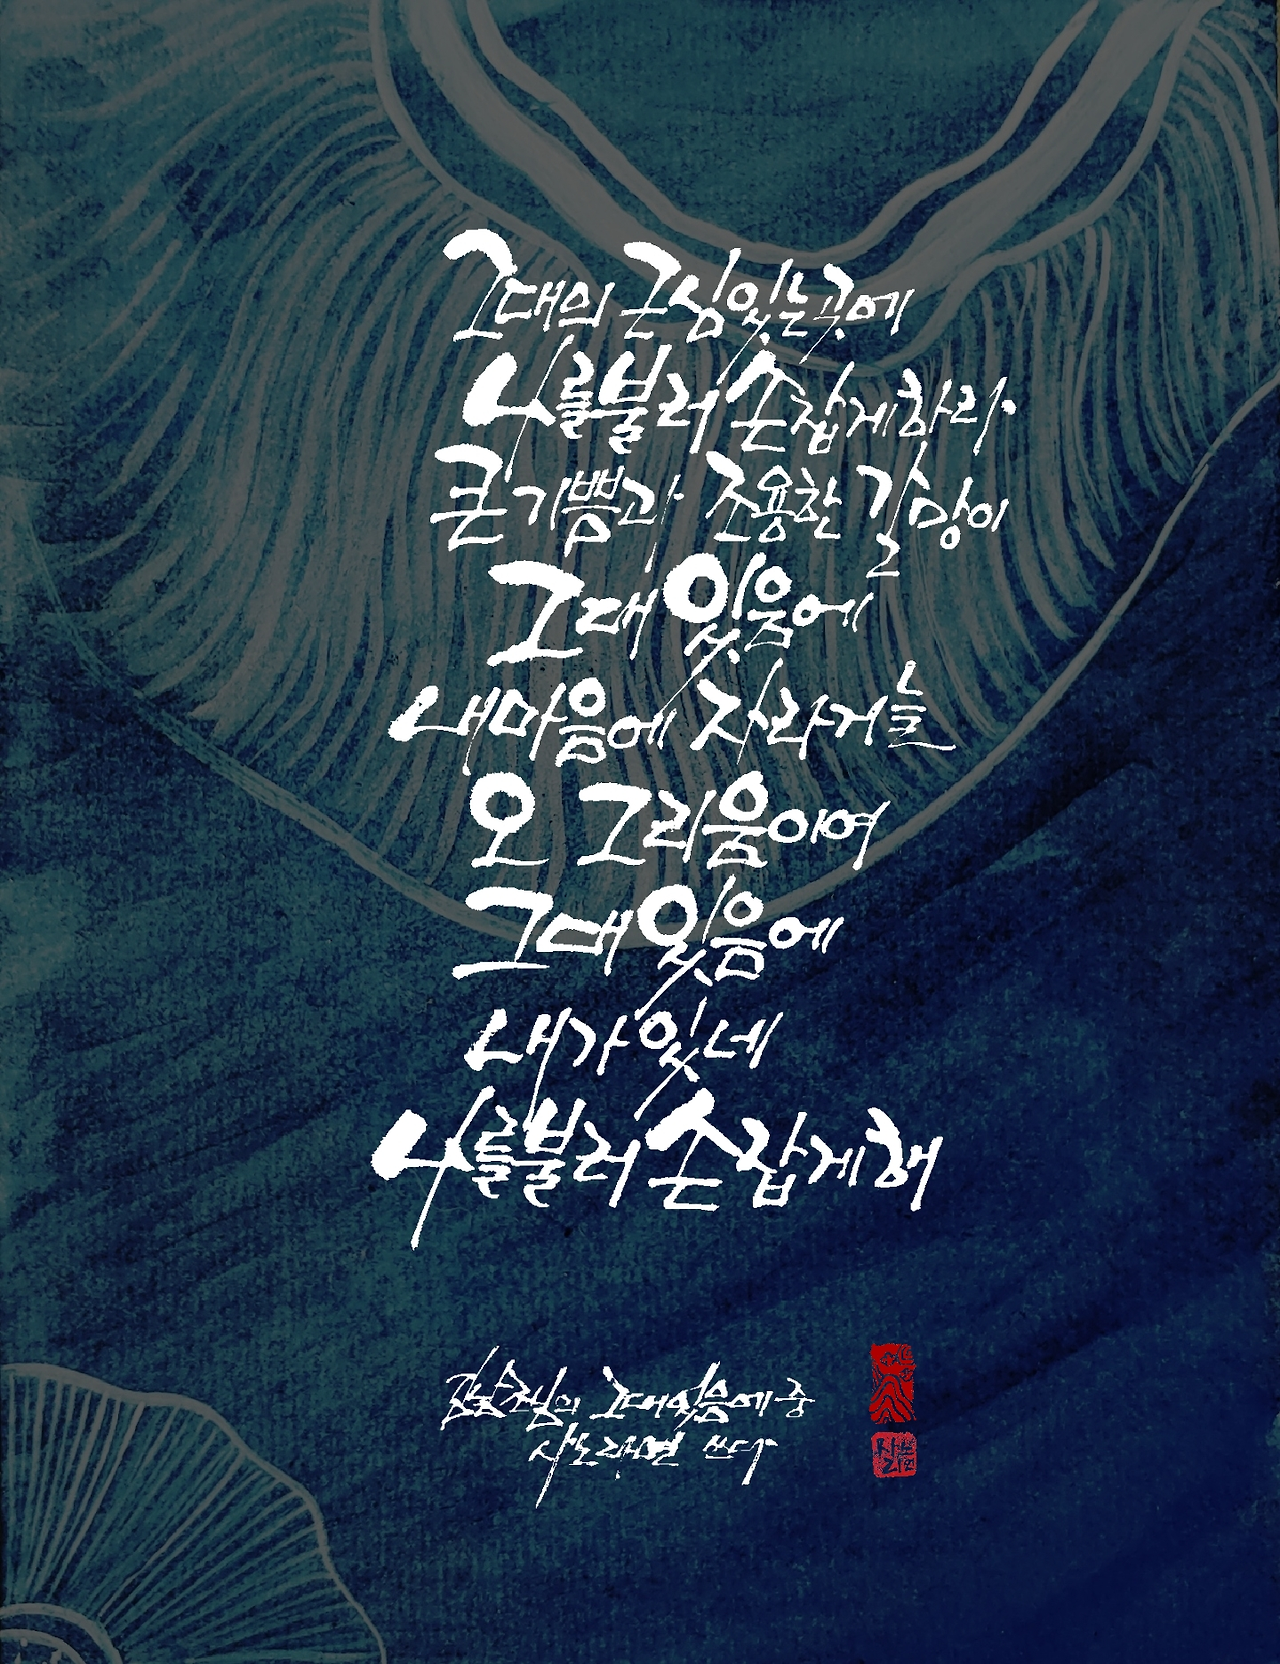 그대의 근심있는곳에
나를불러 손잡게하라
큰기쁨과 조용한 갈망이
그대 있음에
내마음에 자라거늘
오 그리움이여
그대 있음에
내가있네
나를불러 손잡게해
김남조님의 그대있음에 중
시노래면 쓰다